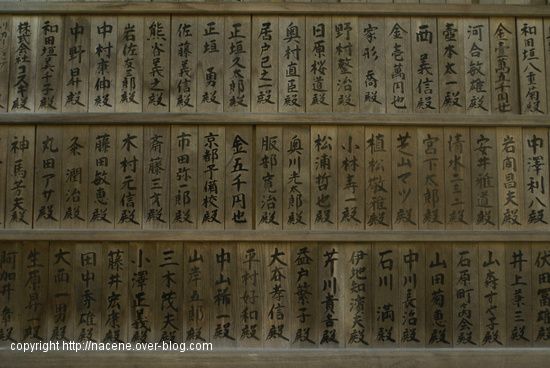 和田垣八重菊殿
金壱萬五千円也
河合敏雄殿
壺本太一殿
西義信殿
金壱萬円也
家形喬殿
野村整治殿
日原桜道殿
奥村直臣殿
居戸己之一殿
正垣久太郎殿
正垣勇殿
佐藤義信殿
熊谷義之殿
岩佐友三郎殿
中村東仲殿
中野昇殿
和田垣美千子殿
株式会社コスギ殿
中澤利八殿
岩間昌夫殿
安井雅道殿
清水二三二殿
宮下太郎殿
芝山マツ殿
植松敏雅殿
小林寿一殿
松浦哲也殿
奥川光太郎殿
服部寛治殿
金五千円也
京都予備校殿
市田弥一郎殿
斎藤三才殿
木村元信殿
藤田敏恵殿
粂潤治殿
丸田アサ殿
神馬芳夫殿
伏田富雄殿
井上兼三殿
山森すへ子殿
石原町内会殿
山田菊恵殿
中川長治殿
石川満殿
伊地知濱夫殿
芥川貴吉殿
益戸繁子殿
大谷孝信殿
平村好和殿
中山稀一殿
山岸五郎殿
三木茂夫殿
小澤正義殿
藤井宏康殿
田中秀雄殿
大西一男殿
生原昇殿
copyright http://nacene.over-blog.com